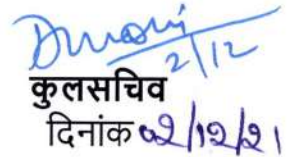 2/12
कुलसचिव
दिनांक 02/12/21